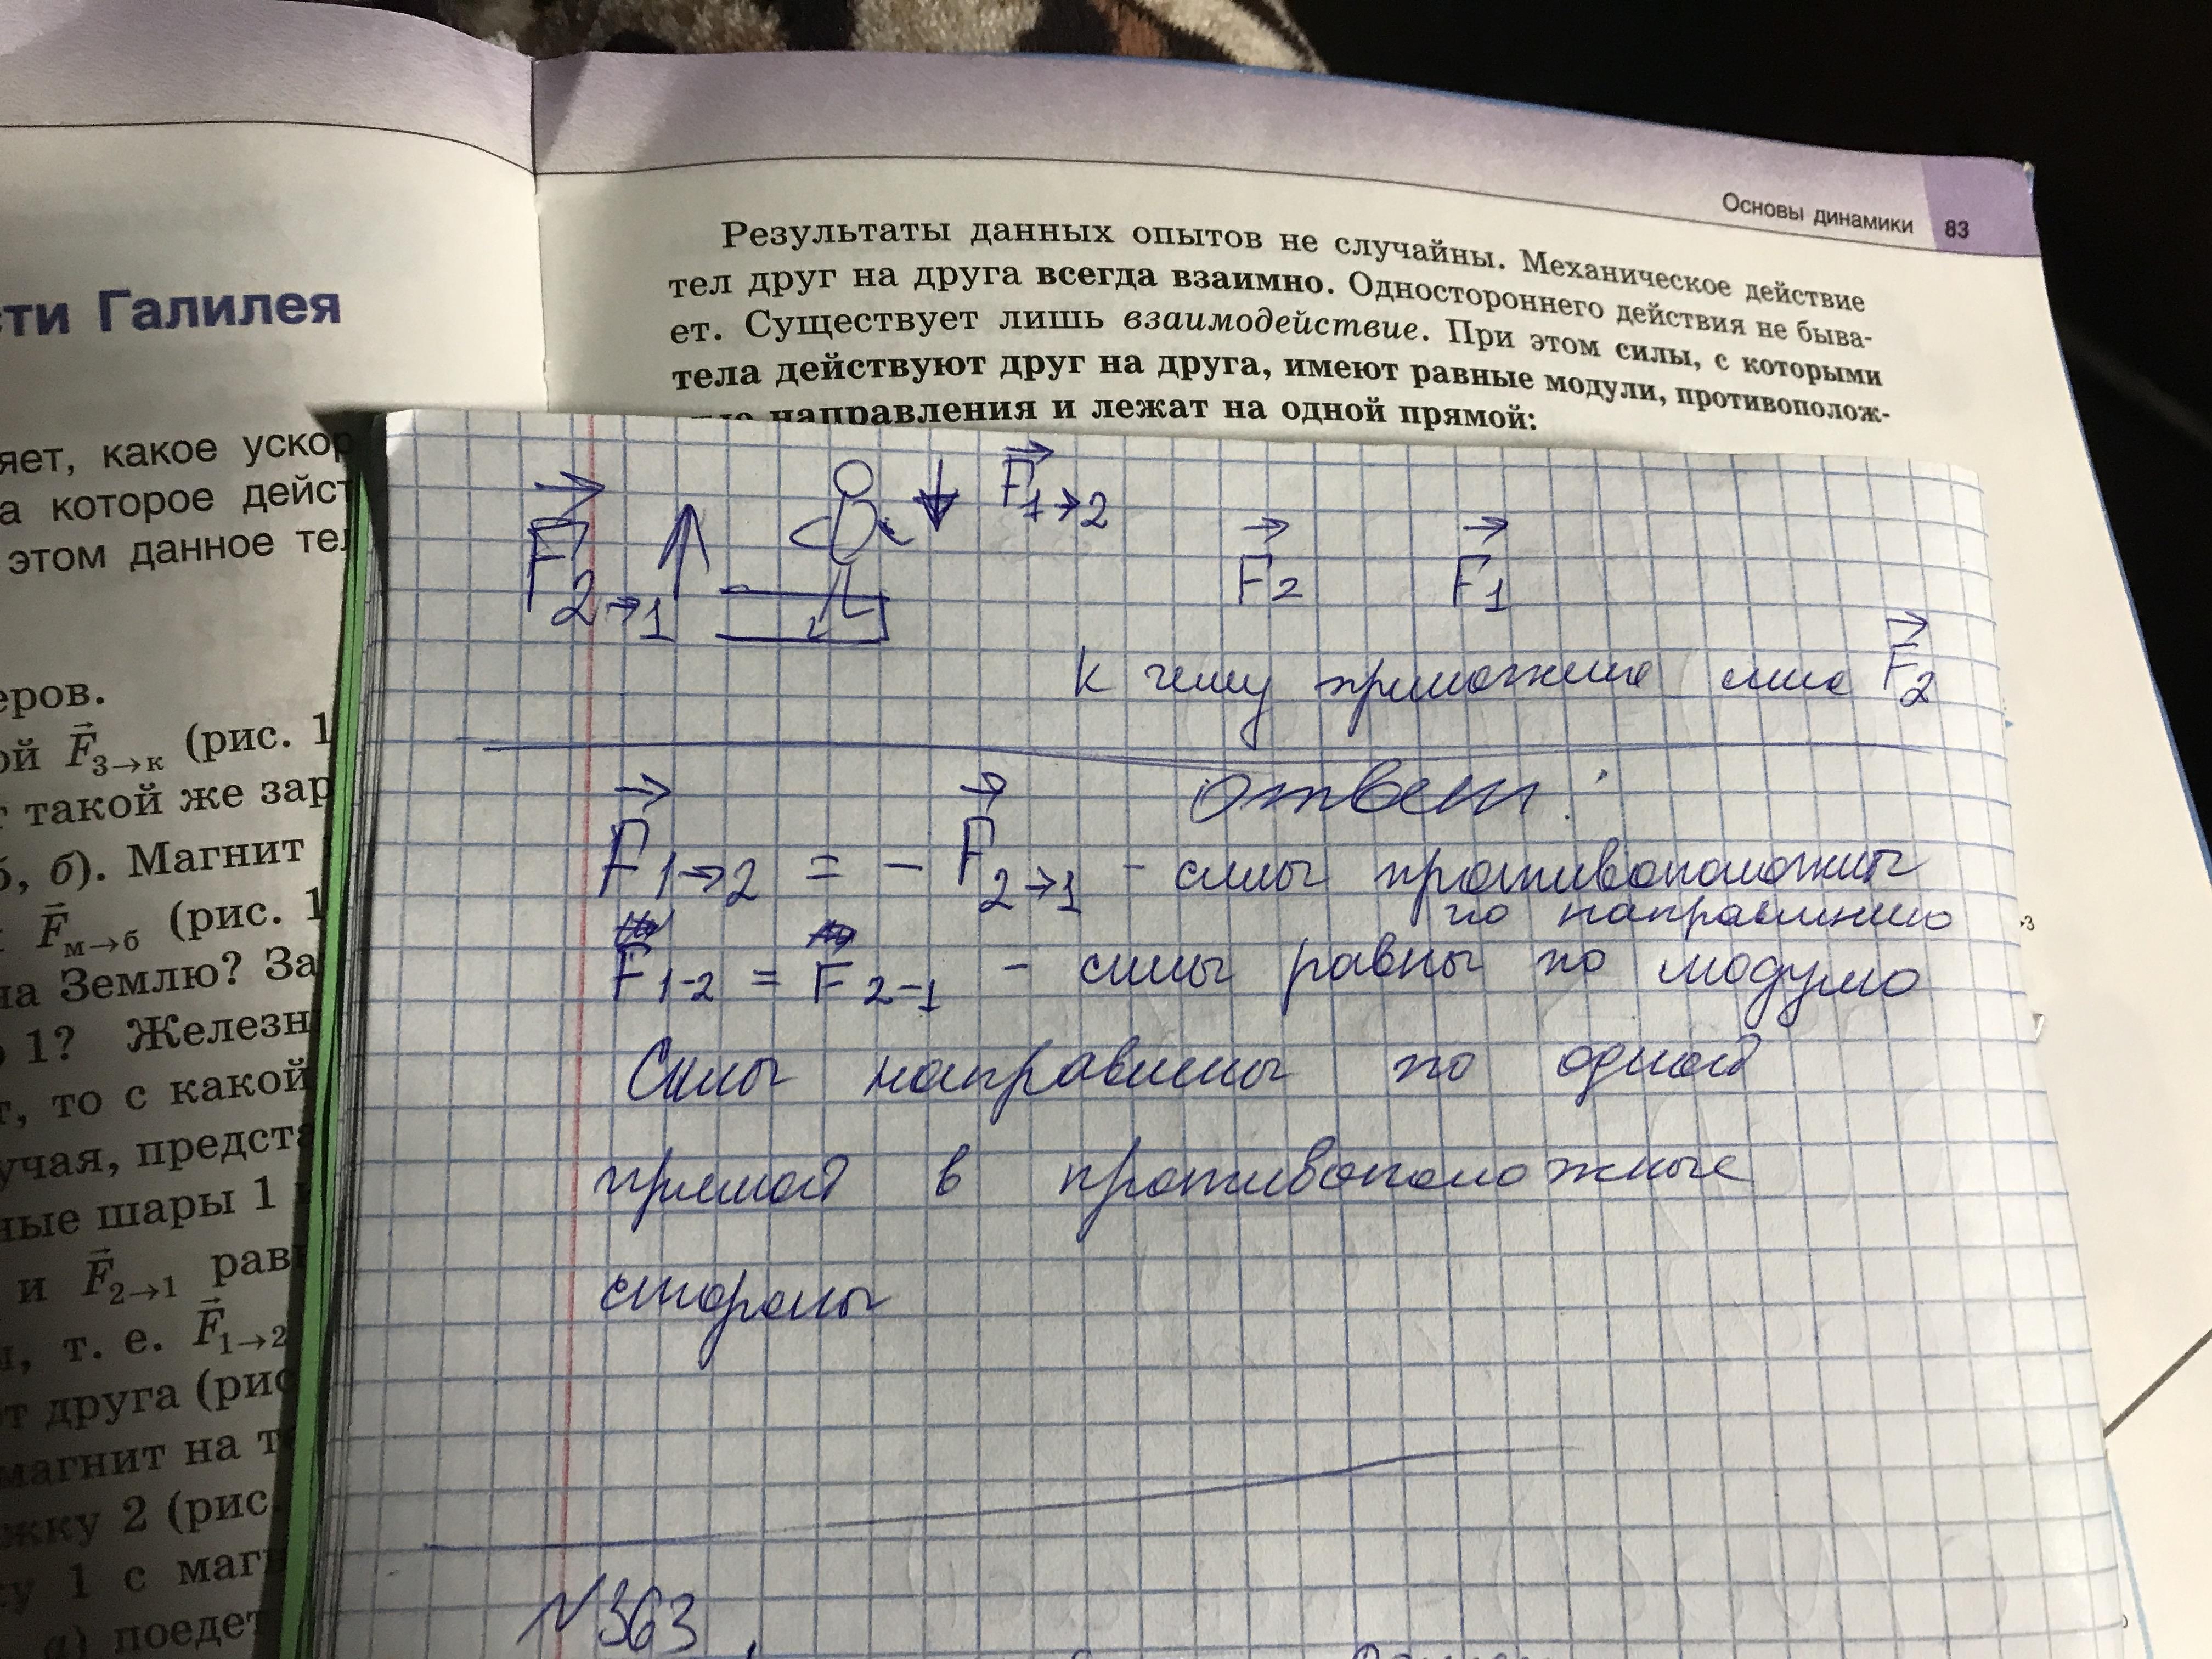 Основы динамики 83
Результаты данных опытов не случайны. Механическое действие
тел друг на друга всегда взаимно. Одностороннего действия не быва-
ет. Существует лишь взаимодействие. При этом силы, с которыми
тела действуют друг на друга, имеют равные модули, противополож-
направления и лежат на одной прямой:
сти Галилея
яет, какое ускор
а которое дейст
этом данное тел
еров.
ой F⃗з→к (рис. 1
т такой же зар
б, б). Магнит
F⃗м→б (рис. 1
на Землю? За
1? Железн
т, то с какой
учая, предста
ные шары 1
и F⃗2→1 рав
ы, т. е. F⃗1→2
от друга (рис
магнит на т
жку 2 (рис.
ку 1 с магн
а) поедет
F⃗2→1 F⃗1→2
F⃗2 F⃗1
к чему приложена сила F⃗2
ответ:
F⃗1→2 = − F⃗2→1 - силы противоположны
по направлению
F1-2 = F2-1 - силы равны по модулю
Силы направлены по одной
прямой в противоположные
стороны
N363